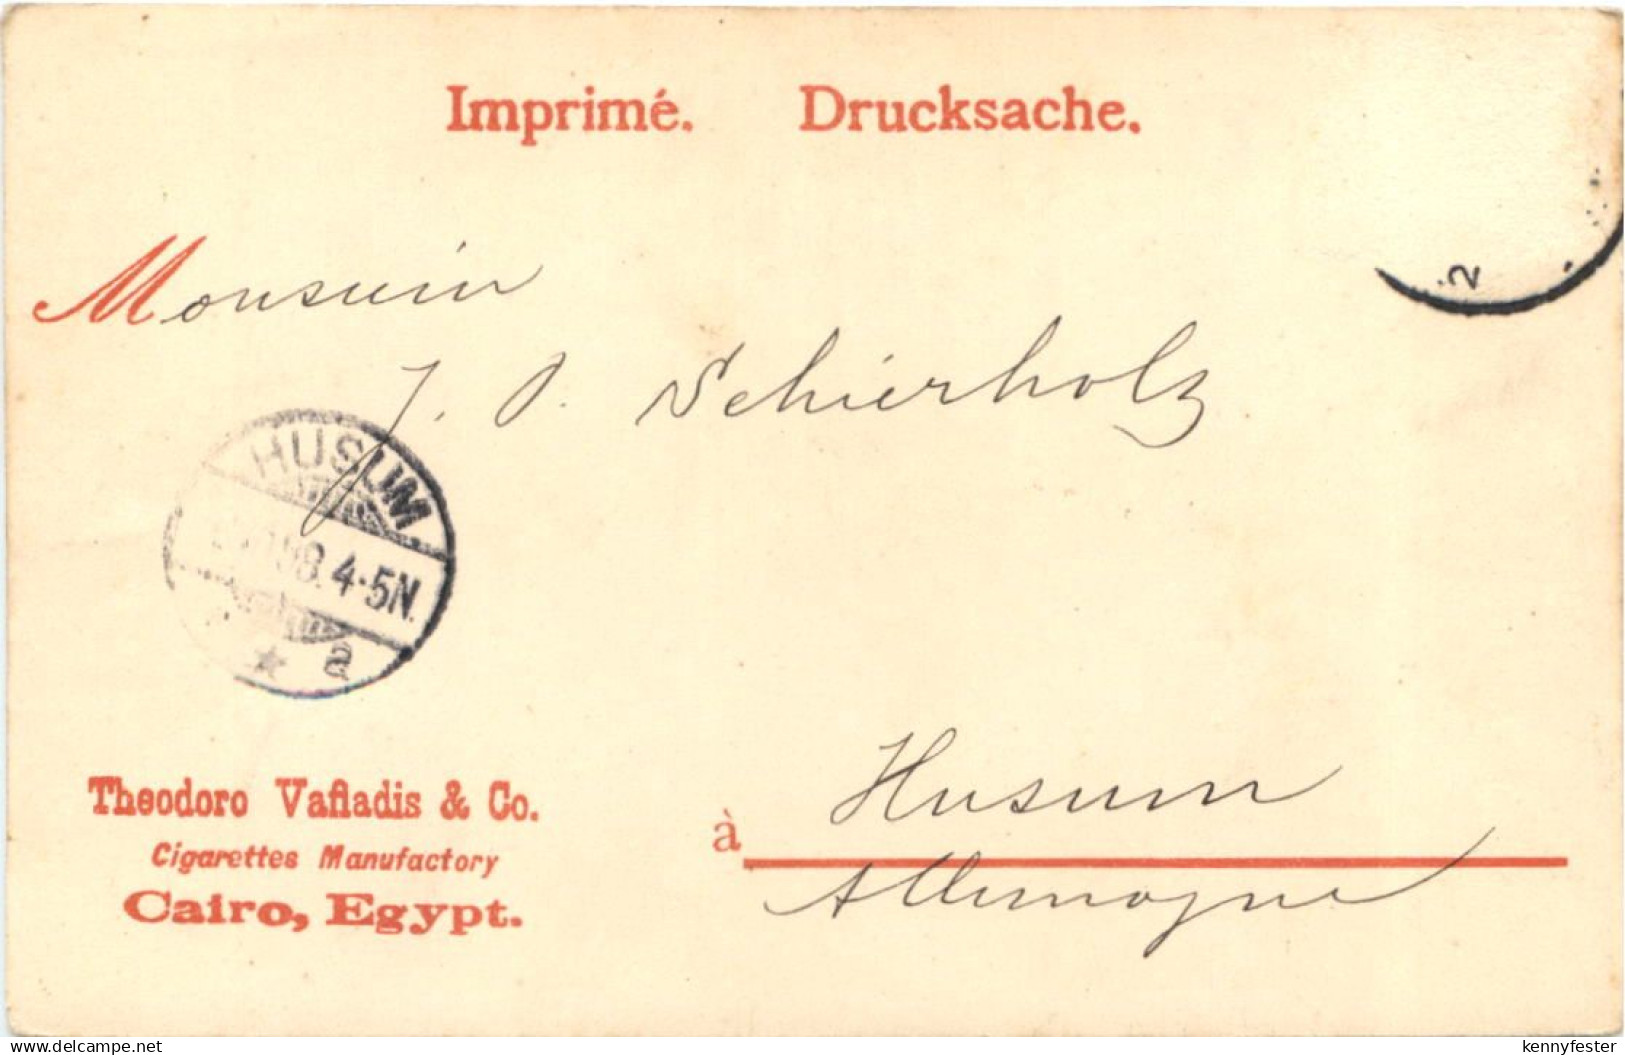 Imprimé. Drucksache.
Monsieur
J. O. Schierholz
HUSUM
98. 4-5N.
* a
2
Theodoro Vafiadis & Co.
Cigarettes Manufactory
Cairo, Egypt.
à Husum
Allemagne
www.delcampe.net
kennyfester